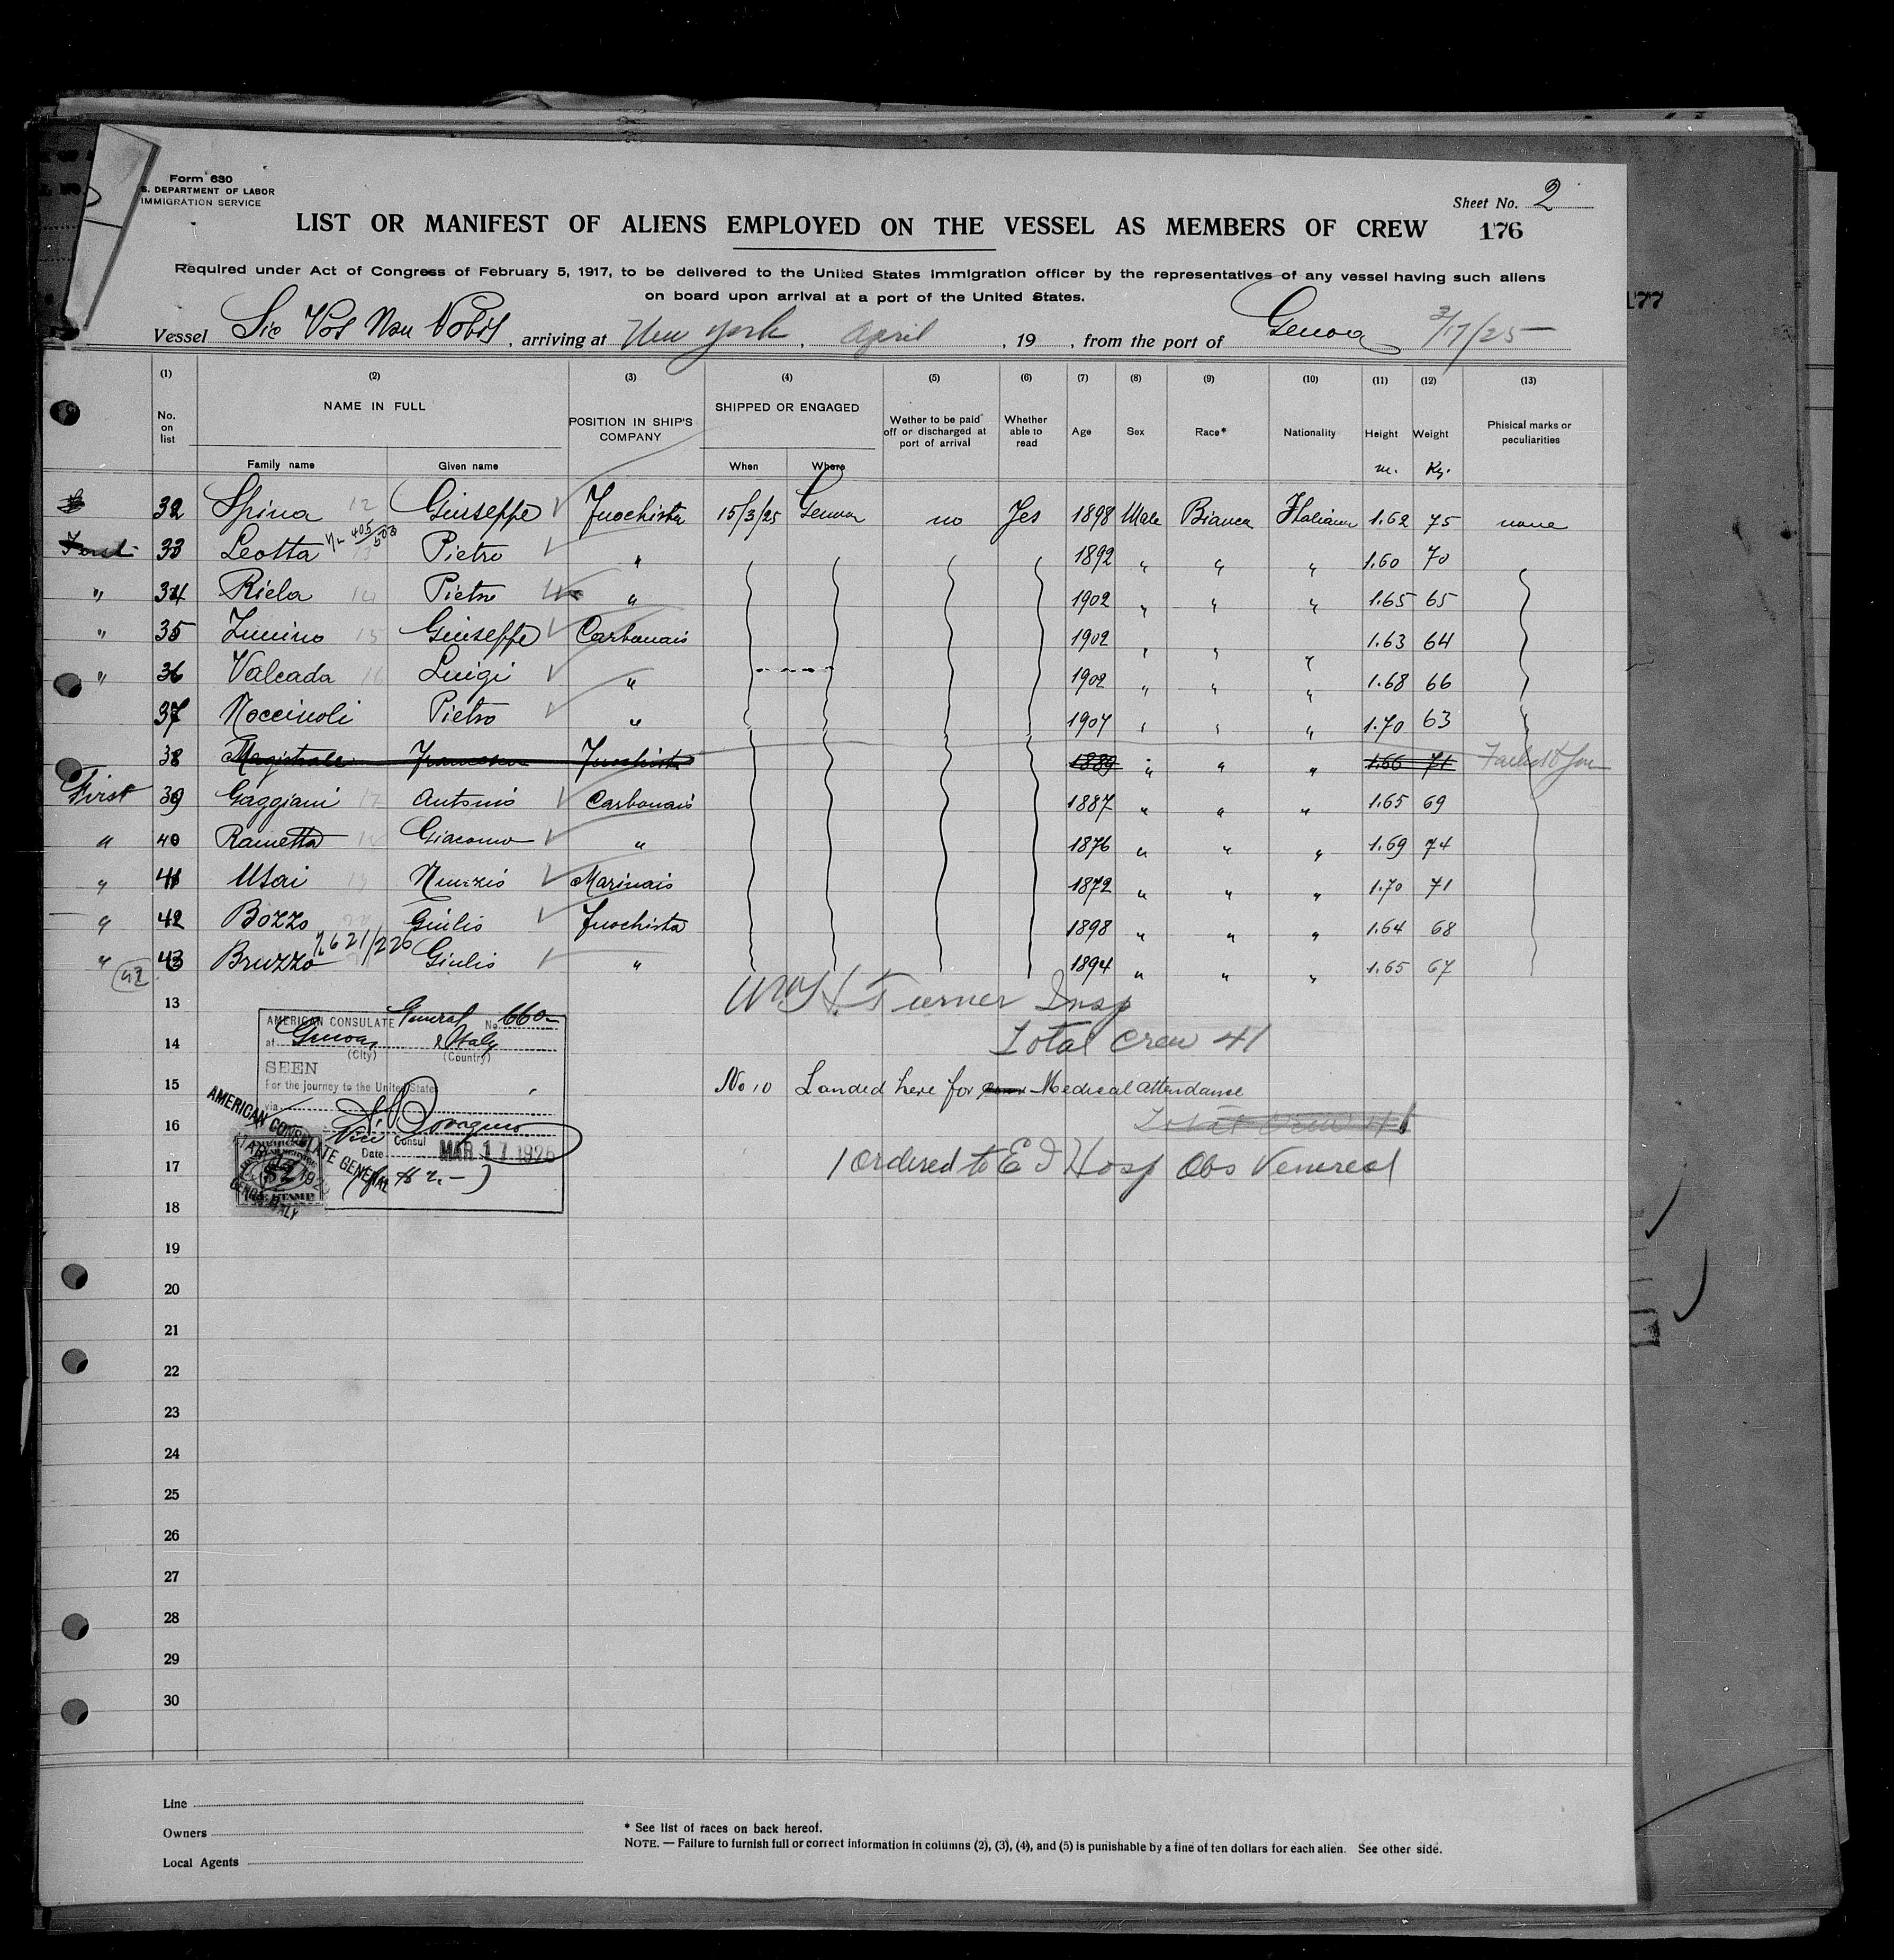 Form 630
S. DEPARTMENT OF LABOR
IMMIGRATION SERVICE
Sheet No. 2
LIST OR MANIFEST OF ALIENS EMPLOYED ON THE VESSEL AS MEMBERS OF CREW 176
Required under Act of Congress of February 5, 1917, to be delivered to the United States immigration officer by the representatives of any vessel having such aliens
on board upon arrival at a port of the United States.
177
Vessel Sic Vos Non Vobis, arriving at New York, April, 19 , from the port of Genova 3/17/25
(1) (2) (3) (4) (5) (6) (7) (8) (9) (10) (11) (12) (13)
No. on list NAME IN FULL POSITION IN SHIP'S COMPANY SHIPPED OR ENGAGED Wether to be paid off or discharged at port of arrival Whether able to read Age Sex Race* Nationality Height Weight Phisical marks or peculiarities
Family name Given name When Where m. Kg.
32 Spina 12 Giuseppe Fuochista 15/3/25 Genova no Yes 1898 Male Bianca Italiana 1.62 75 none
33 Leotta 13 Pietro " 1892 " " " 1.60 70
" 34 Riela 14 Pietro " 1902 " " " 1.65 65
" 35 Zumino 15 Giuseppe Carbonais 1902 " " " 1.63 64
" 36 Valcada 16 Luigi " 1902 " " " 1.68 66
37 Noccinoli Pietro " 1907 " " " 1.70 63
38 Magistrale Francesco Fuochista 1889 " " " 1.66 71 Failed to Join
First 39 Gaggiani 17 Antonio Carbonais 1887 " " " 1.65 69
" 40 Rametta Giacomo " 1876 " " " 1.69 74
" 41 Usai 19 Nunzio Marinais 1872 " " " 1.70 71
" 42 Bozzo Giulio Fuochista 1898 " " " 1.64 68
" 43 Bruzzo 621/226 Giulio " 1894 " " " 1.65 67
42
13 Turner Insp
AMERICAN CONSULATE General No. 660
14 Total Crew 41
at Genoa, Italy
(City) (Country)
SEEN
15 No 10 Landed here for Medical attendance
For the journey to the United States
via
16 Total Crew 41
Vice Consul
AMERICAN CONSULATE GENERAL
GENOA ITALY
Date MAR 17 1925
17 1 ordered to E I Hosp Obs Venereal
$2
18
19
20
21
22
23
24
25
26
27
28
29
30
Line
Owners
Local Agents
* See list of races on back hereof.
NOTE. — Failure to furnish full or correct information in columns (2), (3), (4), and (5) is punishable by a fine of ten dollars for each alien. See other side.